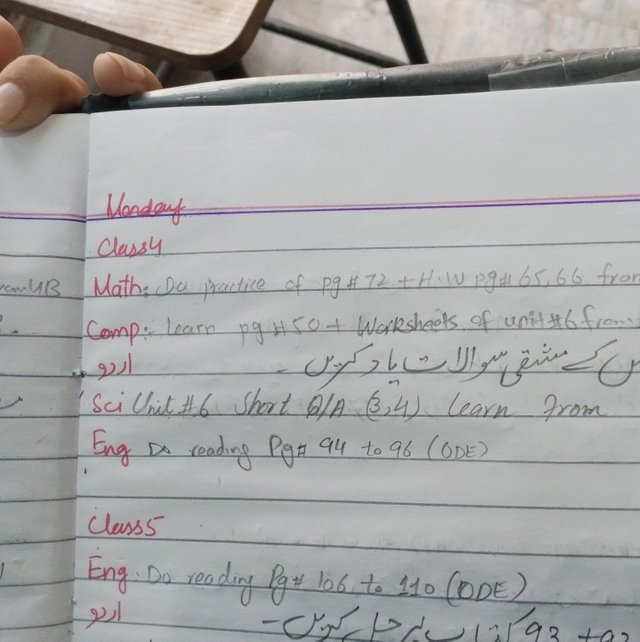 Monday
Class 4
Math: Do practice of pg # 72 + H.W pg # 65,66 from
Comp: Learn pg # 50 + Worksheets of unit # 6 from
اردو کے مشقی سوالات یاد کریں۔
Sci Unit # 6 Short Q/A (3,4) Learn From
Eng Do reading Pg # 94 to 96 (ODE)
Class 5
Eng. Do reading Pg # 106 to 110 (ODE)
اردو 93 کتاب پر حل کریں۔